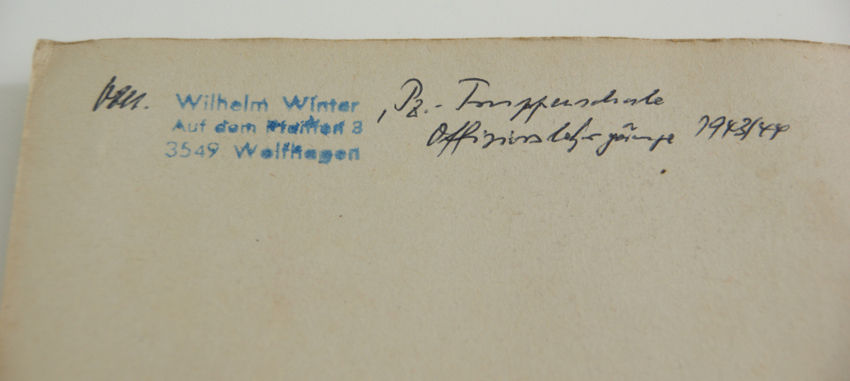 Wilhelm Winter, Pz.- Truppenschule
Auf dem 3 Offizierslehrgänge 1943/44
3549 Wolfhagen